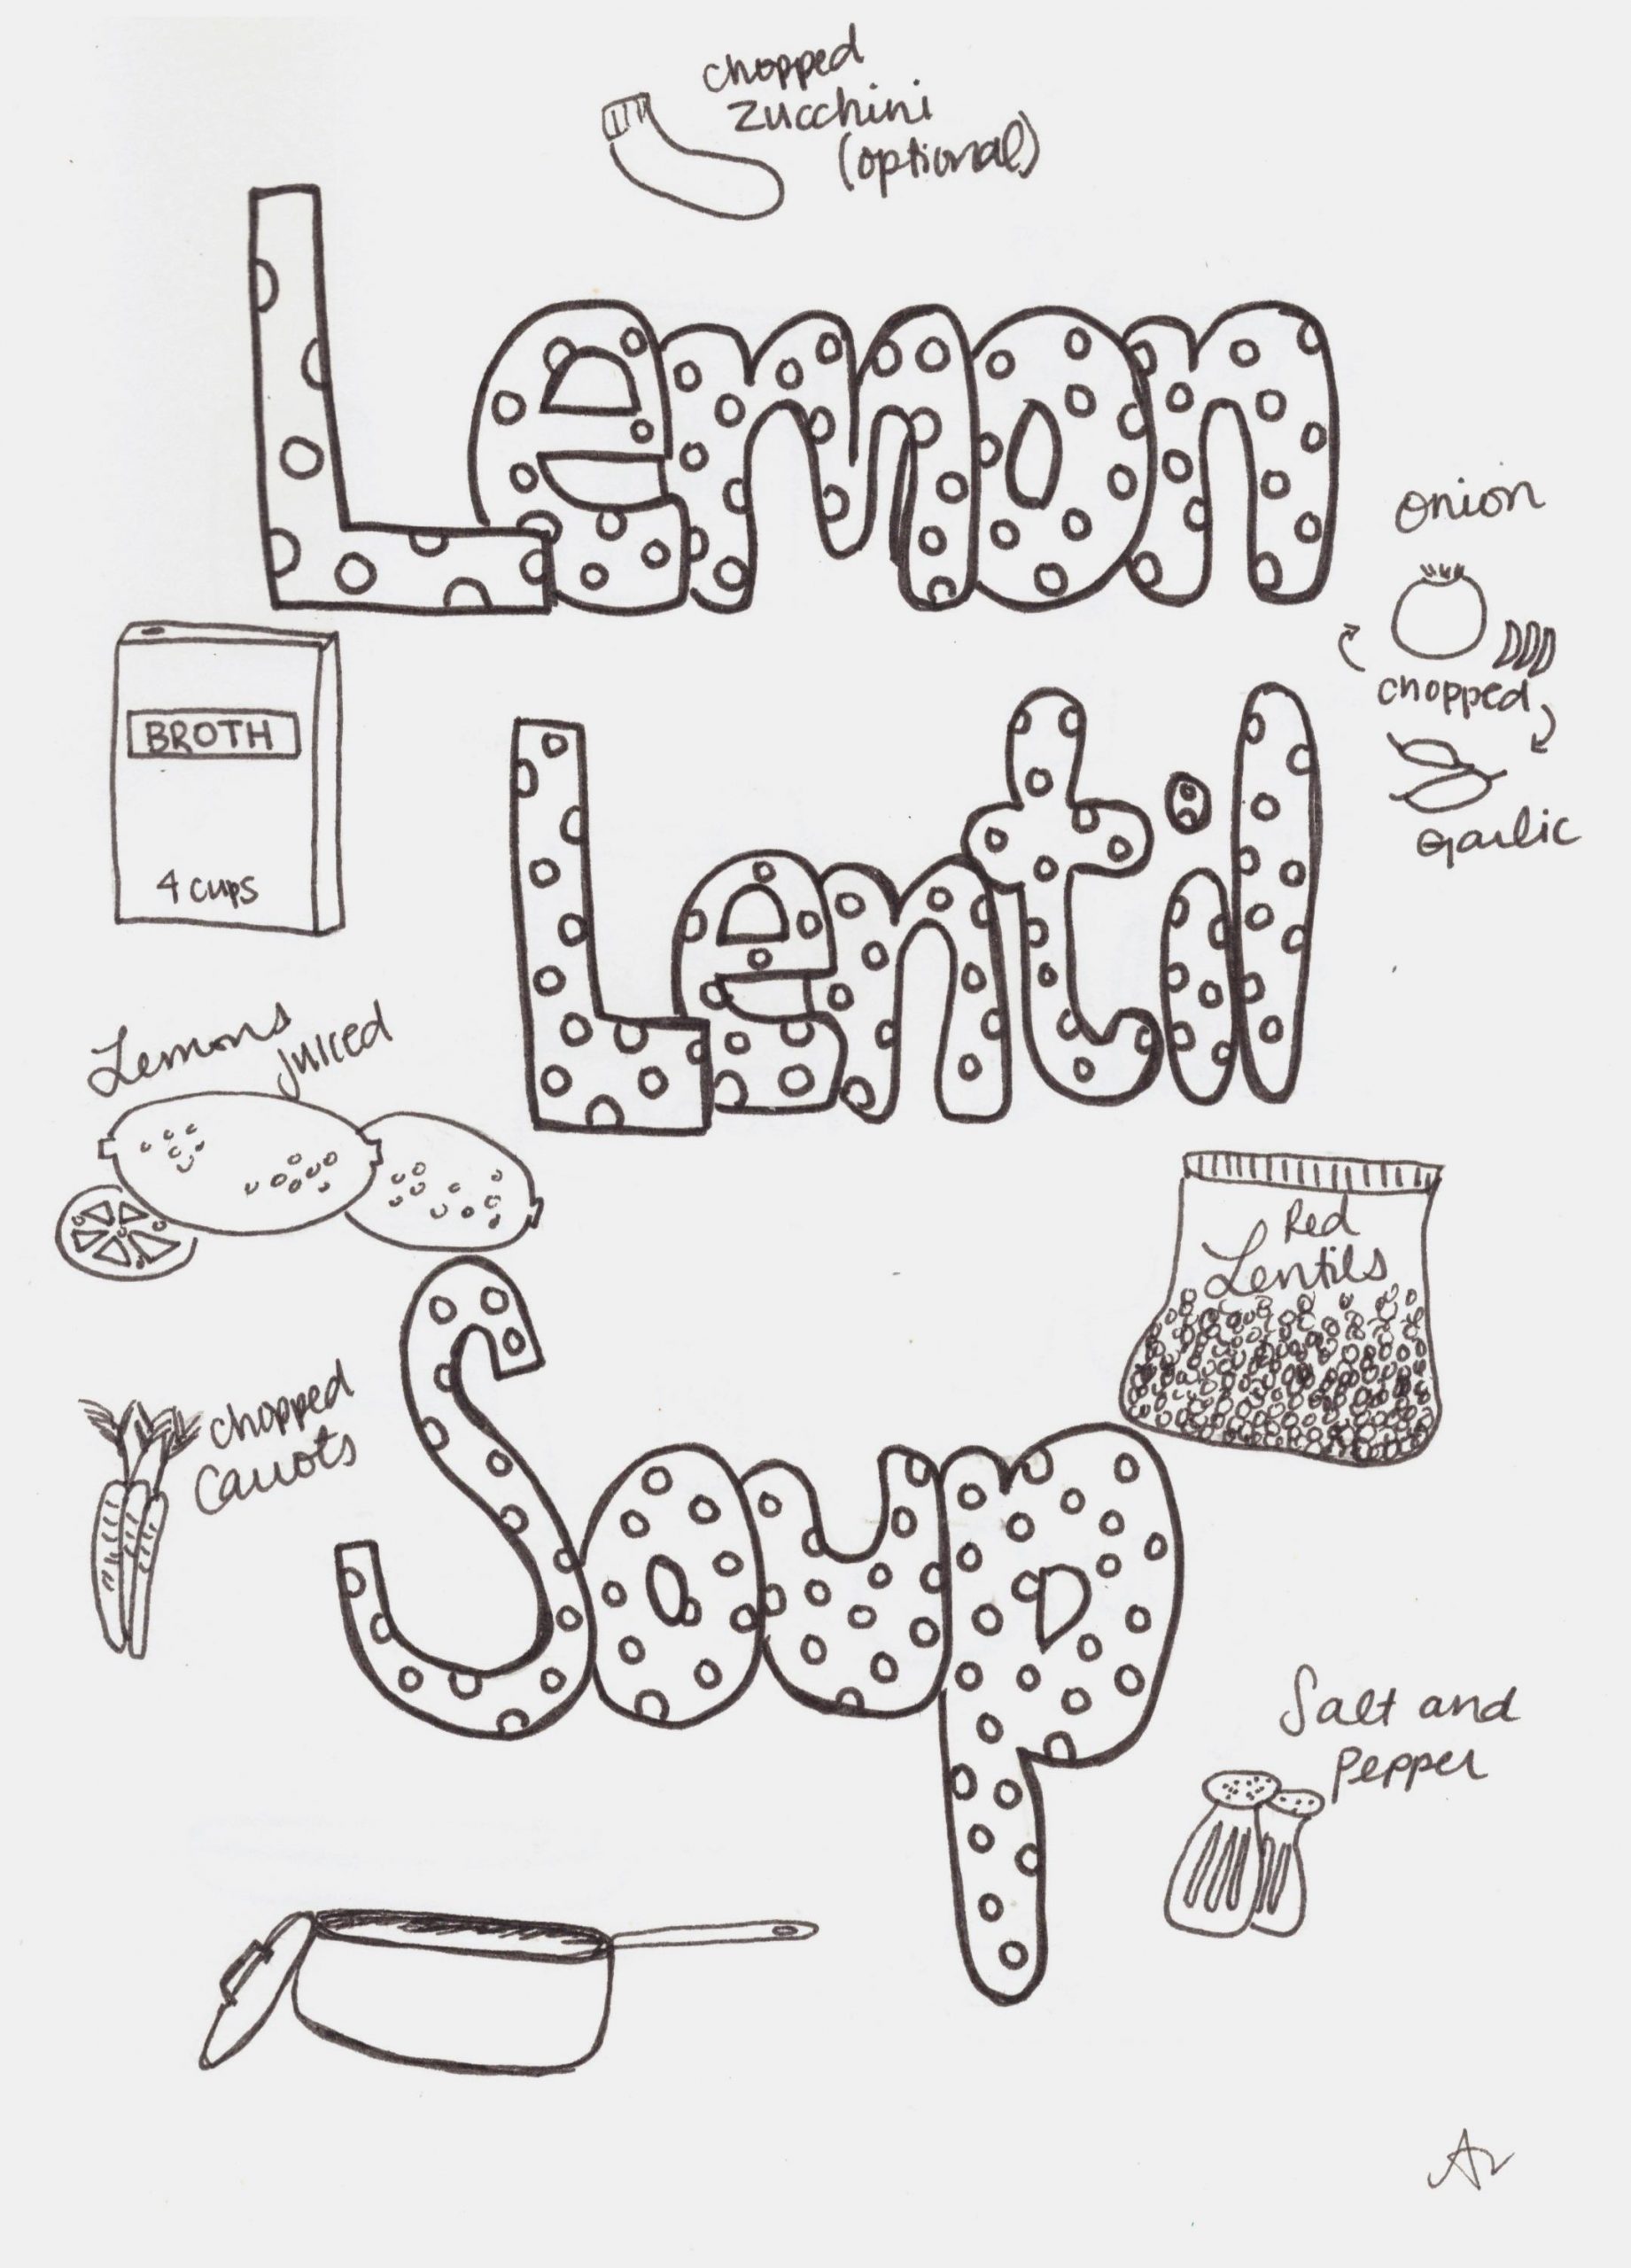 chopped
zucchini
(optional)
Lemon
onion
chopped
Garlic
BROTH
4 cups
Lentil
Lemons
juiced
Red
Lentils
chopped
carrots
Soup
Salt and
Pepper